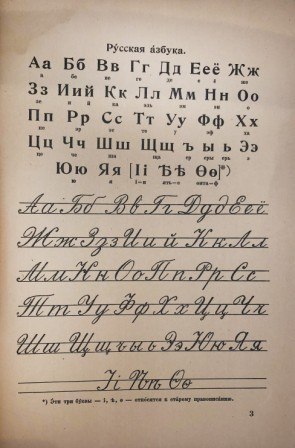 Ру́сская а́збука.
Аа Бб Вв Гг Дд Ееё Жж
а бе ве ге де е ё же
Зз Иий Кк Лл Мм Нн Оо
зе и й ка эль эм эн о
Пп Рр Сс Тт Уу Фф Хх
пе эр эс те у эф ха
Цц Чч Шш Щщ ъ ы ь Ээ
це че ша ща ер еры ерь э
Юю Яя [Іі Ѣѣ Ѳѳ]*)
ю я
Аа Бб Вв Гг Дд Ееё
Жж Зз Ии й Кк Лл
Мм Нн Оо Пп Рр Сс
Тт Уу Фф Хх Цц Чч
Шш Щщ ъ ы ь Ээ Юю Яя
Іі Ѣѣ Ѳѳ
*) Э́ти три бу́квы — і, ѣ, ѳ — отно́сятся к ста́рому правописа́нию.
3